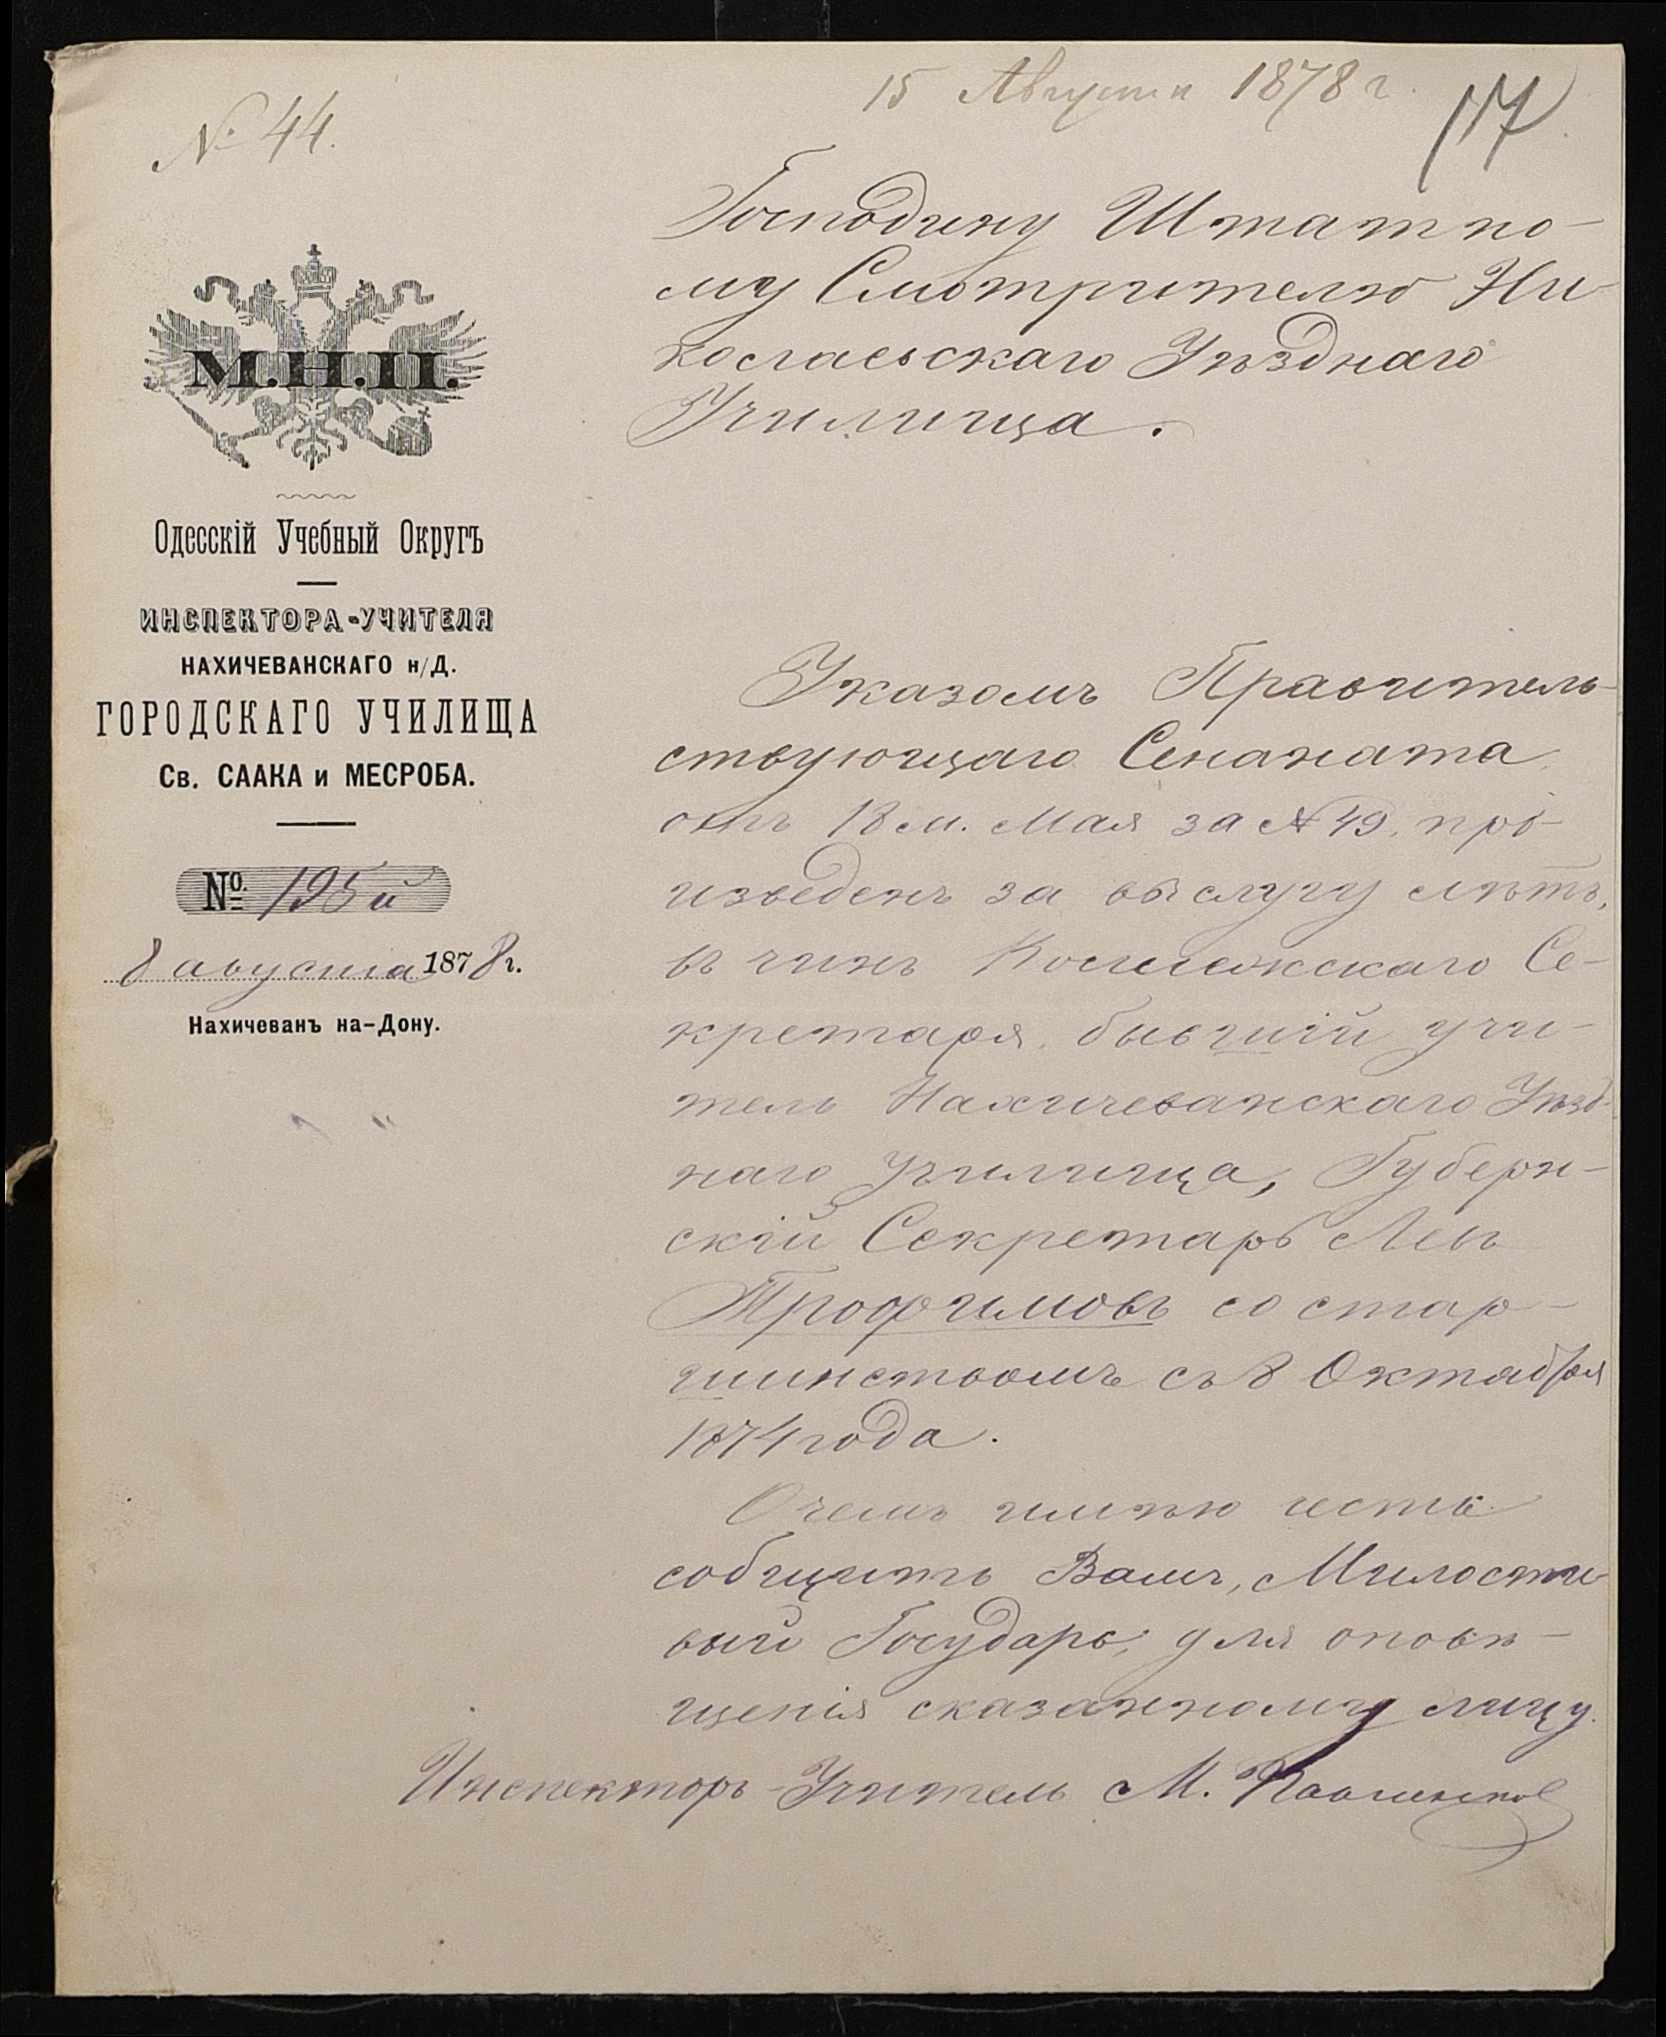 № 44.
15 Августа 1878 г.
117
М.Н.П.
Одесскій Учебный Округъ
ИНСПЕКТОРА-УЧИТЕЛЯ
НАХИЧЕВАНСКАГО н/Д.
ГОРОДСКАГО УЧИЛИЩА
Св. СААКА и МЕСРОБА.
№ 195й
8 августа 1878 г.
Нахичеванъ на-Дону.
Господину Штатно-
му Смотрителю Ни-
колаевскаго Уѣзднаго
Училища.
Указомъ Правитель-
ствующаго Сенаната
отъ 18 м. Мая за № 49. про-
изведенъ за выслугу лѣтъ,
въ чинъ Коллежскаго Се-
кретаря бывшій учи-
тель Нахичеванскаго Уѣзд-
наго Училища, Губерн-
скій Секретарь Левъ
Трофимовъ со стар-
шинствомъ съ 8 Октября
1874 года.
О чемъ имѣю честь
собщить Вамъ, Милости-
вый Государь, для оповѣ-
щенія сказанному лицу.
Инспекторъ-Учитель М.